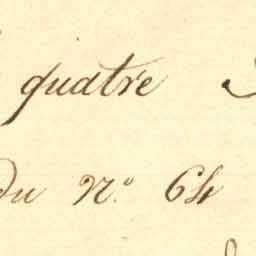 quatre
du N.º 64